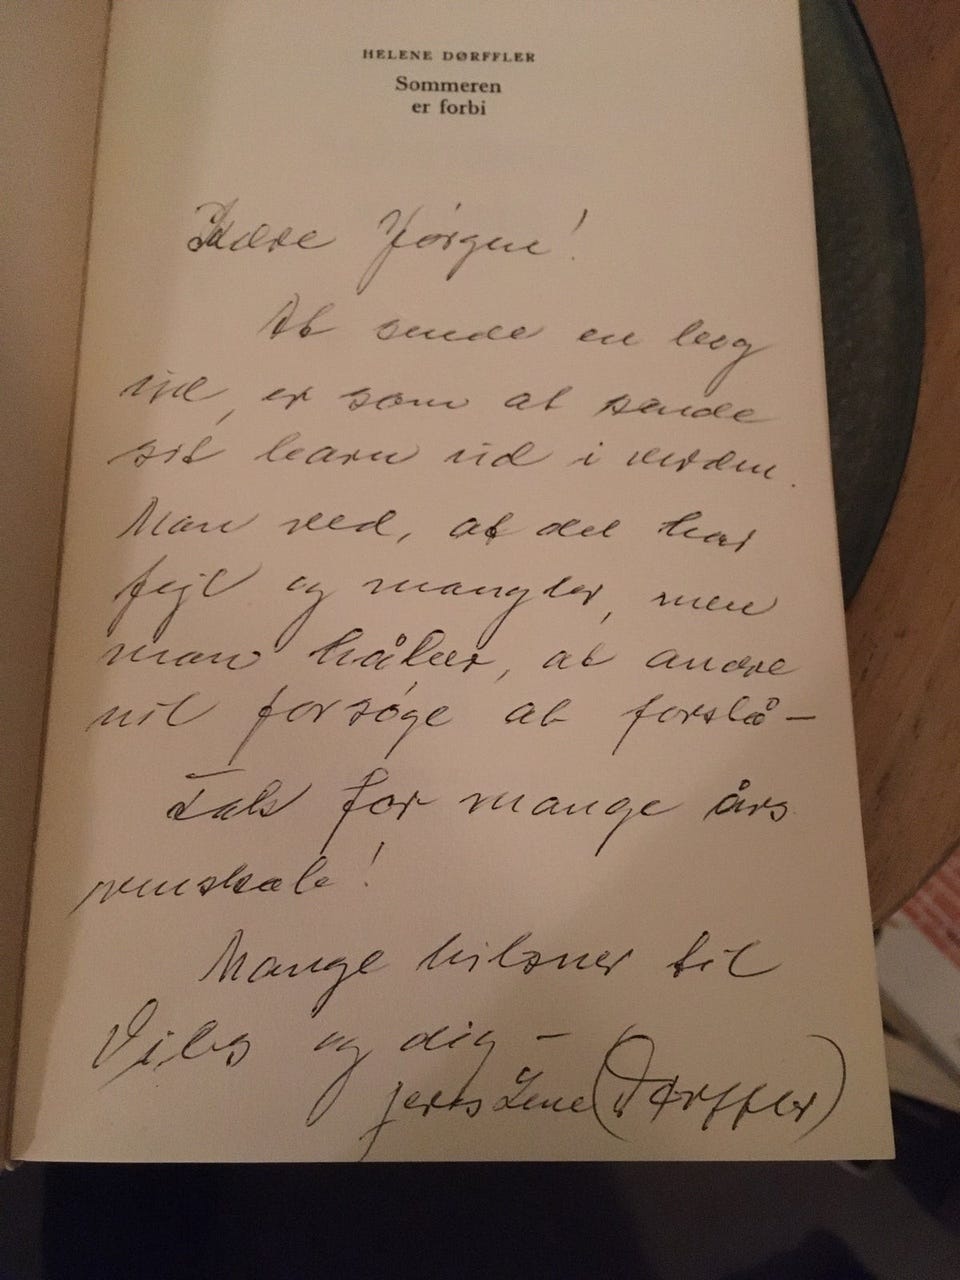 HELENE DØRFFLER
Sommeren
er forbi
Kære Jørgen!
At sende en bog
ud, er som at sende
sit barn ud i verden.
Man ved, at det har
fejl og mangler, men
man håber, at andre
vil forsøge at forstå –
Tak for mange års
venskab!
Mange hilsner til
Vibs og dig –
Jeres Lene (Dørffler)